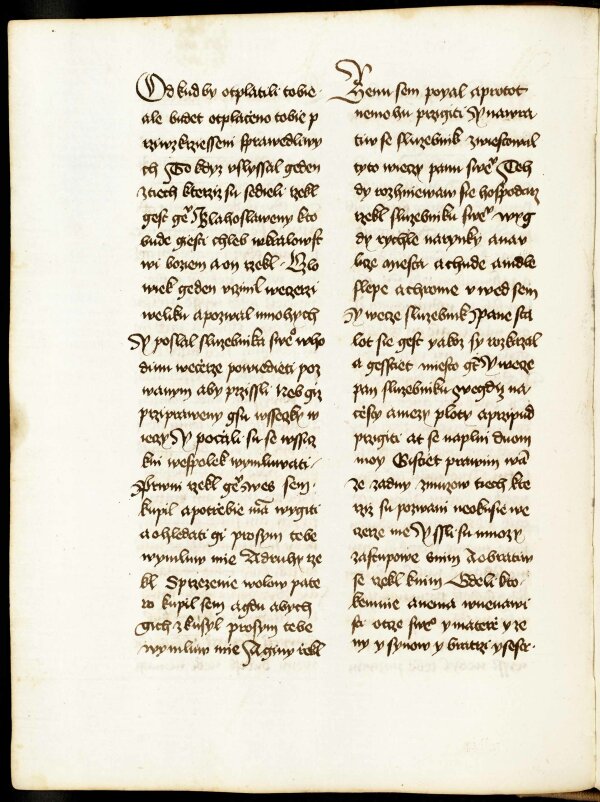 Od kud by otplatili tobie
ale budet otplaceno tobie p
rziwzkrziesseni sprawedliwy
ch To kdyz vslyssal geden
z tiech kterziz su sedieli rzekl
gest gemu Blahoslaweny kto
bude giesti chleb wkralowst
wi boziem a on rzekl Czlo
wiek geden vcinil weczerzi
weliku a pozwal mnohych
Y poslal sluzebnika sweho w ho
dinu weczerze powiedieti poz
wanym aby przissli neb giz
przipraweny gsu wsseczky w
ieczy Y poczali su se wssicz
kni wespolek wymluwati
Prwni rzekl gemu wes sem
kupil a potrzebie mam wygiti
a ohledati gi prosym tebe
wymluw mie A druhy rze
kl Sprzezenie wolow pate
ro kupil sem a gdu abych
gich zkusyl prosym tebe
wymluw mie A giny rzekl
Zenu sem poyal a protot
nemohu przigiti Y nawra
tiw se sluzebnik zwiestowal
tyto wieczy panu swemu Teh
dy rozhniewaw sie hospodarz
rzekl sluzebniku swemu wyg
di rychle na rynky a na v
licze miesta a chude a mdle
slepe a chrome vwed sem
Y wecze sluzebnik Pane sta
lot sie gest yakoz sy rozkazal
a gesstiet miesto gest Y wecze
pan sluzebniku zwegdiz na
czesty a mezy ploty a przipud
przigiti at se naplni duom
moy Gistiet prawim wam
ze zadny z muzow tiech kte
rziz su pozwani neokusie we
czerze me Y ssli su mnozy
zastupowe s nim A obratiw
se rzekl k nim Gdeli kto
ke mnie a nema w nenawi
sti otcze sweho y materze y ze
ny y synow y bratrzi y sestr